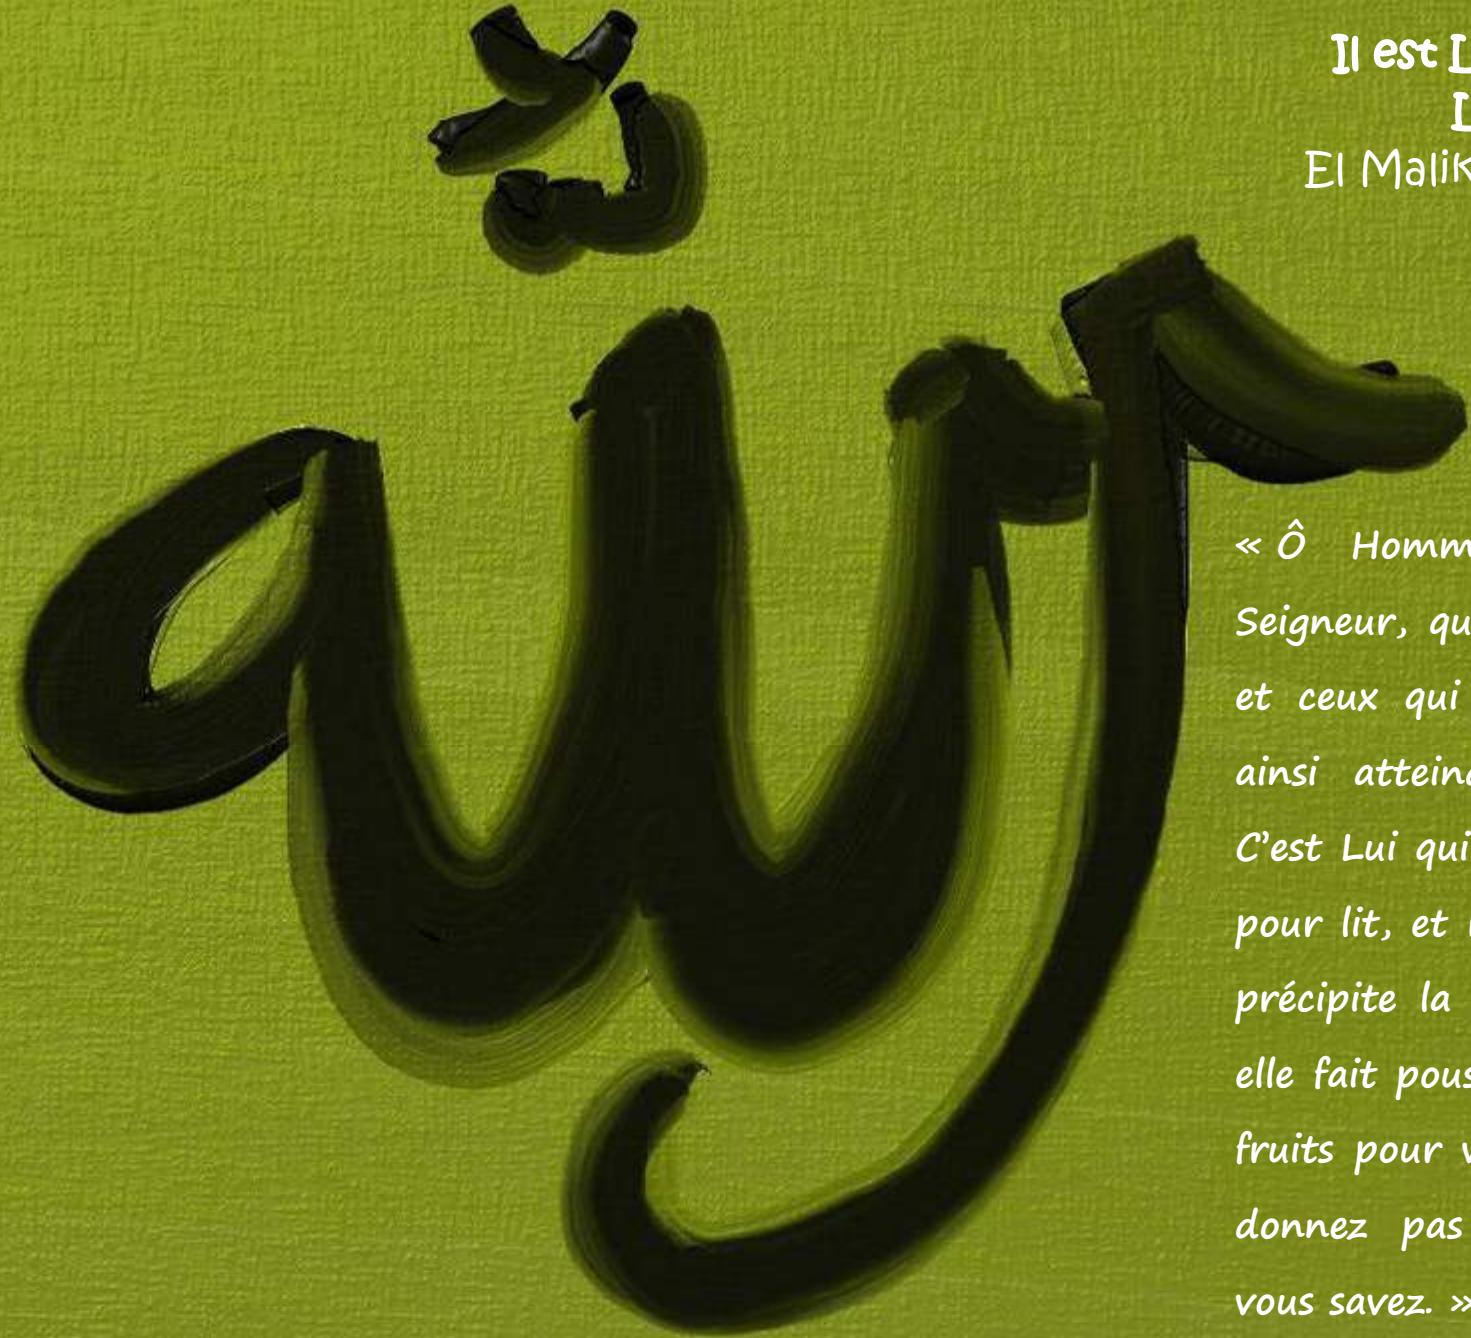 Il est L
L
El Malik
« Ô Homm
Seigneur, qu
et ceux qui
ainsi atteind
C'est Lui qui
pour lit, et
précipite la
elle fait pous
fruits pour v
donnez pas
vous savez. »